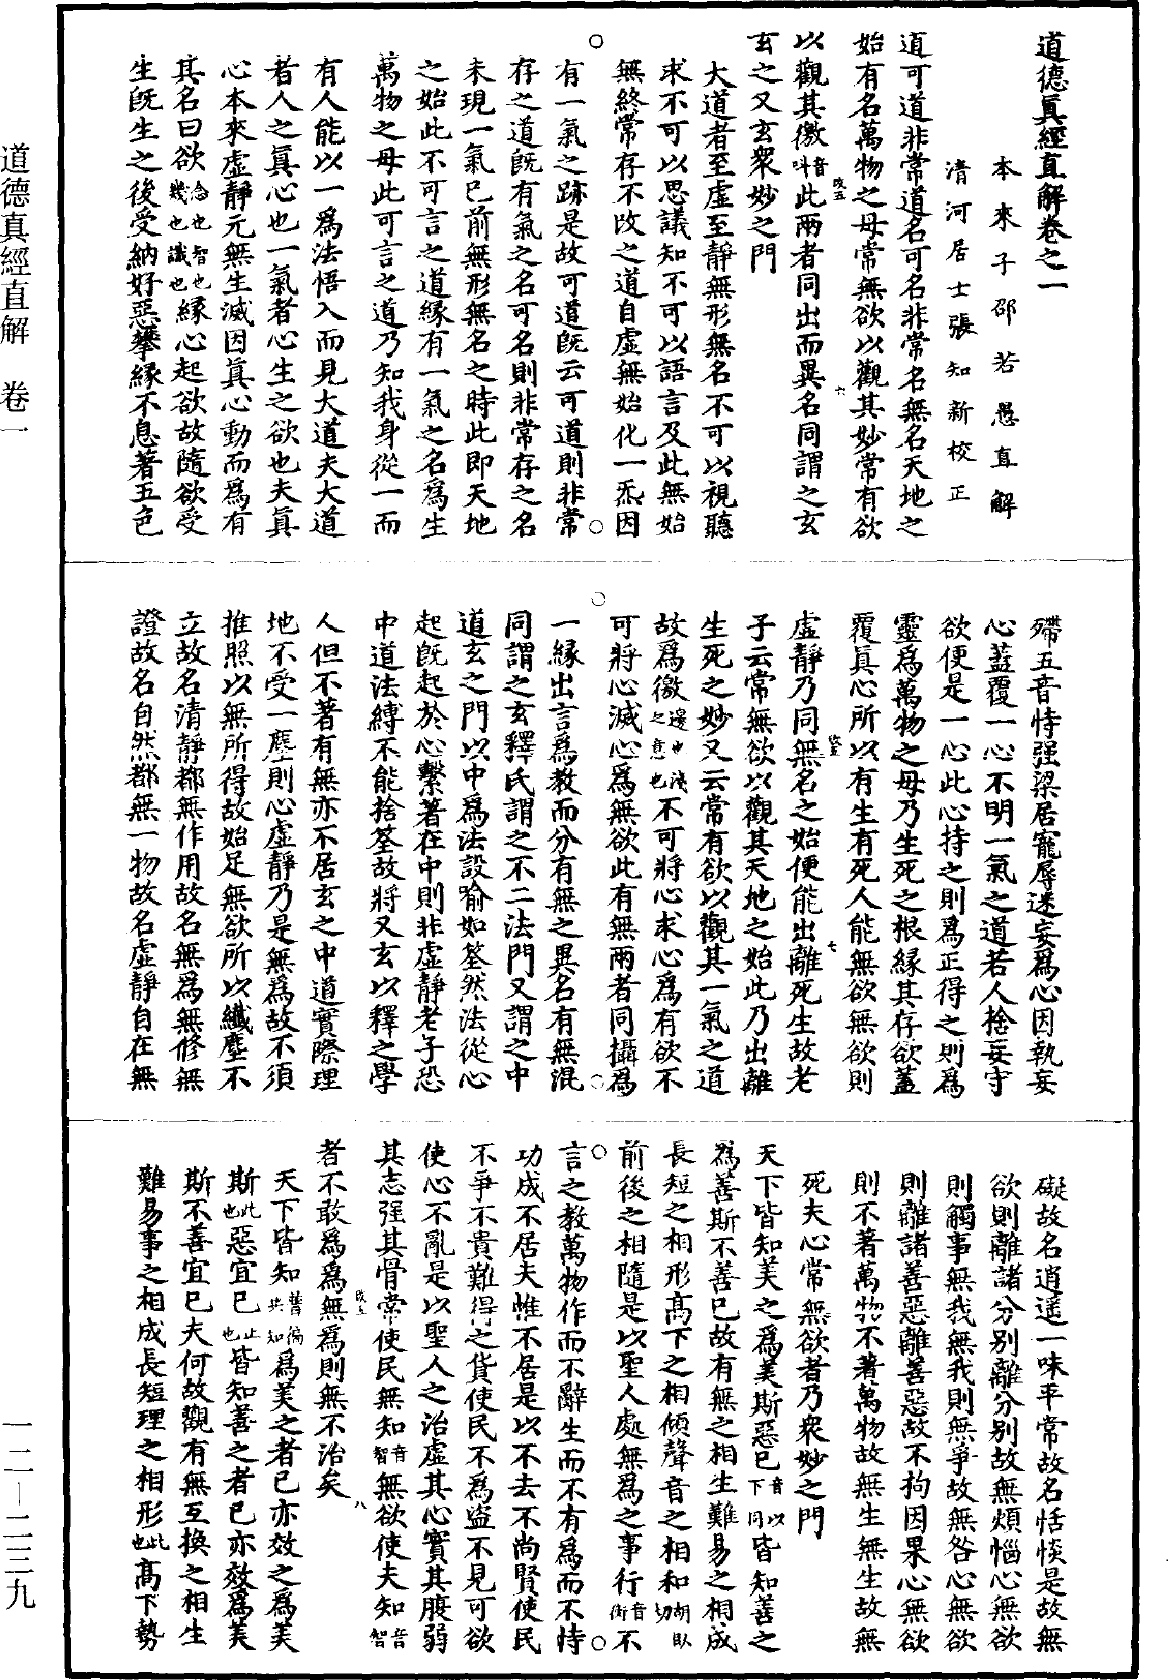 道德眞經直解卷之一
本來子邵若愚直解
清河居士張知新校正
道可道非常道名可名非常名無名天地之
始有名萬物之母常無欲以觀其妙常有欲
以觀其徼音叫此兩者同出而異名同謂之玄
玄之又玄衆妙之門
大道者至虛至靜無形無名不可以視聽
求不可以思議知不可以語言及此無始
無終常存不改之道自虛無始化一炁因
有一氣之跡是故可道旣云可道則非常
存之道旣有氣之名可名則非常存之名
未現一氣已前無形無名之時此即天地
之始此不可言之道緣有一氣之名爲生
萬物之母此可言之道乃知我身從一而
有人能以一爲法悟入而見大道夫大道
者人之眞心也一氣者心生之欲也夫眞
心本來虛靜元無生滅因眞心動而爲有
其名曰欲念也智也幾也識也緣心起欲故隨欲受
生旣生之後受納好惡攀緣不息著五色
殢五音恃强梁居寵辱迷妄爲心因執妄
心蓋覆一心不明一氣之道若人捨妄守
欲便是一心此心持之則爲正得之則爲
靈爲萬物之母乃生死之根緣其存欲蓋
覆眞心所以有生有死人能無欲無欲則
虛靜乃同無名之始便能出離死生故老
子云常無欲以觀其天地之始此乃出離
生死之妙又云常有欲以觀其一氣之道
故爲徼邊也淺之意也不可將心求心爲有欲不
可將心滅心爲無欲此有無兩者同攝爲
一緣出言爲教而分有無之異名有無混
同謂之玄釋氏謂之不二法門又謂之中
道玄之門以中爲法設喻如筌然法從心
起旣起於心繫著在中則非虛靜老子恐
中道法縛不能捨筌故將又玄以釋之學
人但不著有無亦不居玄之中道實際理
地不受一塵則心虛靜乃是無爲故不須
推照以無所得故始足無欲所以纖塵不
立故名清靜都無作用故名無爲無修無
證故名自然都無一物故名虛靜自在無
礙故名逍遥一味平常故名恬惔是故無
欲則離諸分別離分別故無煩惱心無欲
則觸事無我無我則無爭故無咎心無欲
則離諸善惡離善惡故不拘因果心無欲
則不著萬物不著萬物故無生無生故無
死夫心常無欲者乃衆妙之門
天下皆知美之爲美斯惡已音以下同皆知善之
爲善斯不善已故有無之相生難易之相成
長短之相形高下之相傾聲音之相和胡臥切
前後之相隨是以聖人處無爲之事行音衡不
言之教萬物作而不辭生而不有爲而不恃
功成不居夫惟不居是以不去不尚賢使民
不爭不貴難得之貨使民不爲盜不見可欲
使心不亂是以聖人之治虛其心實其腹弱
其志强其骨常使民無知音智無欲使夫知音智
者不敢爲爲無爲則無不治矣
天下皆知普徧共知爲美之者已亦效之爲美
斯此也惡宜已止也皆知善之者已亦效爲美
斯不善宜已夫何故觀有無互換之相生
難易事之相成長短理之相形此也高下勢
道德真經直解　卷一
一二—二三九
改五
六
改五
七
改五
八